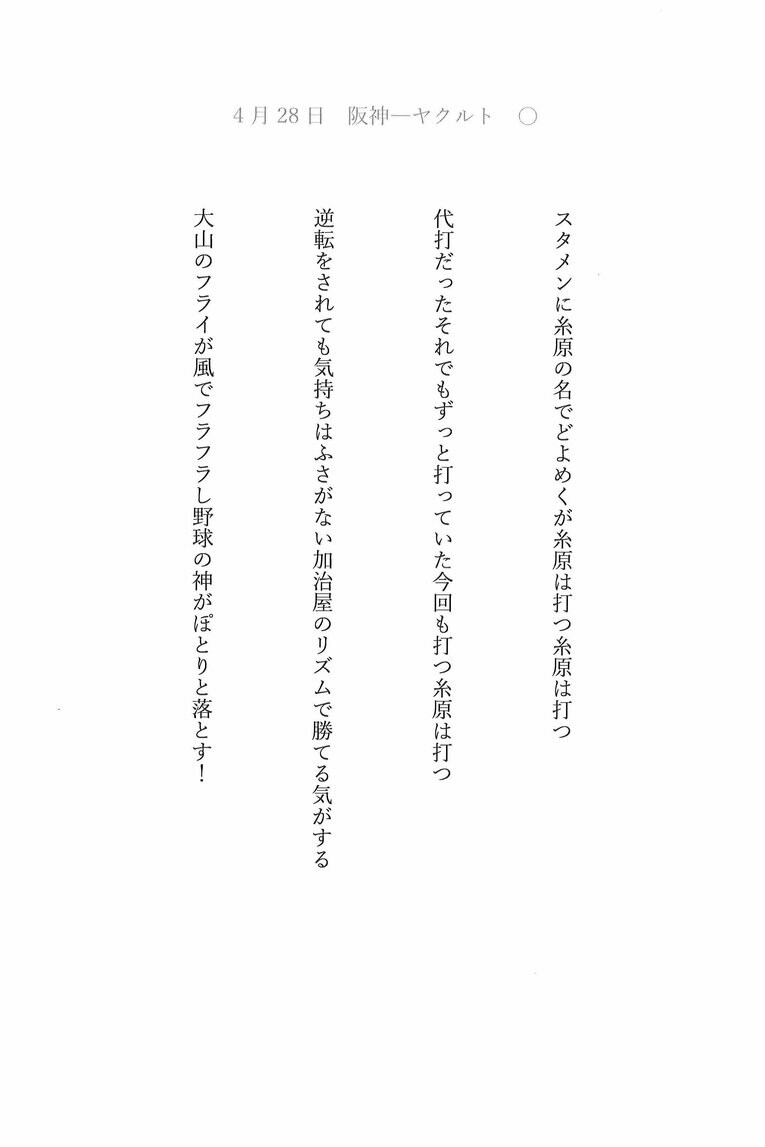 4月28日　阪神―ヤクルト　○
スタメンに糸原の名でどよめくが糸原は打つ糸原は打つ
代打だったそれでもずっと打っていた今回も打つ糸原は打つ
逆転をされても気持ちはふさがない加治屋のリズムで勝てる気がする
大山のフライが風でフラフラし野球の神がぽとりと落とす！